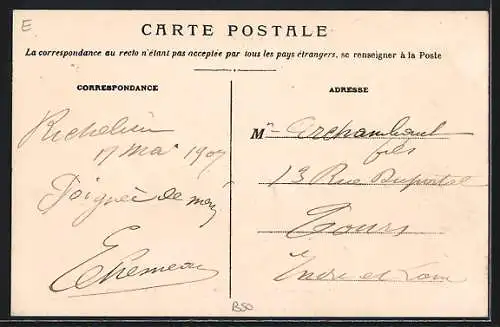 E
CARTE POSTALE
La correspondance au recto n'étant pas acceptée par tous les pays étrangers, se renseigner à la Poste
CORRESPONDANCE
Richelieu
17 Mai 1907
Poignée de main
ADRESSE
Mr Archambault
fils
13 Rue Duportal
Tours
Indre et Loire
B50